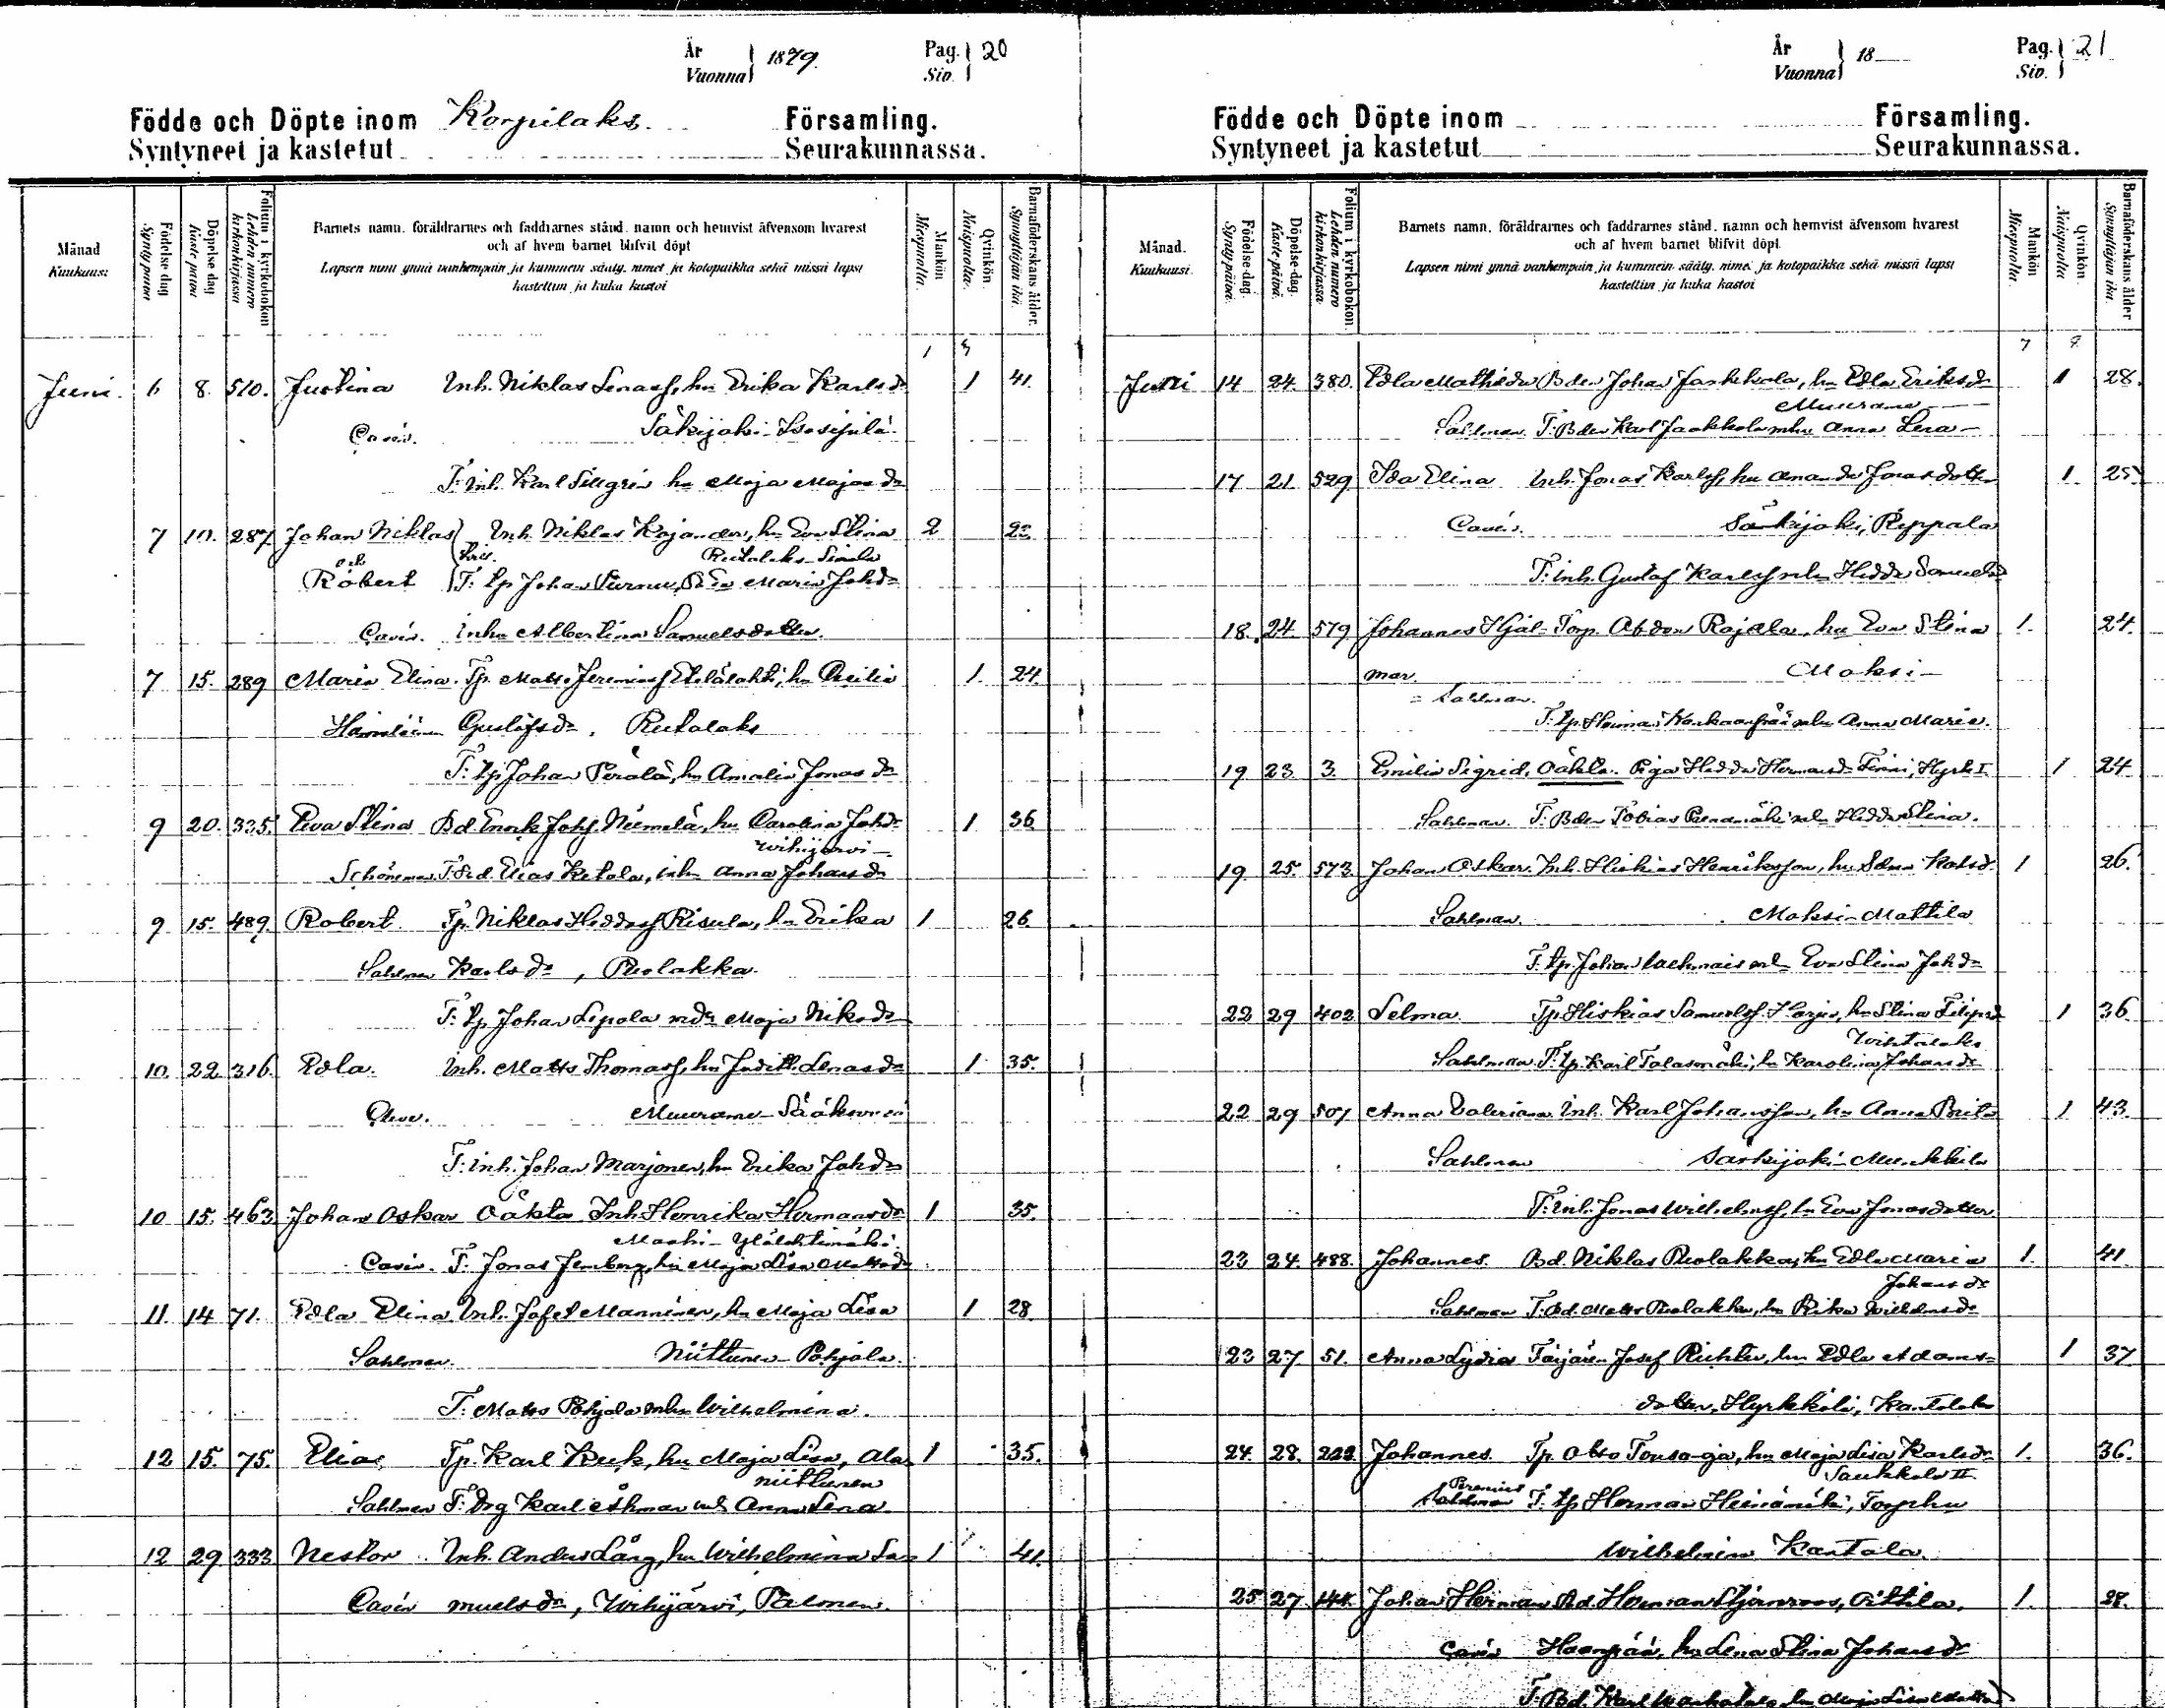 År Vuonna 1879.
Pag. Siv. 20
Födde och Döpte inom Korpilaks. Församling.
Syntyneet ja kastetut Seurakunnassa.
Månad Kuukausi
Födelse dag Synty päivä
Döpelse dag Kaste päivä
Folium i kyrkoboken Lehden numero kirkonkirjassa
Barnets namn, föräldrarnes och faddrarnes stånd, namn och hemvist äfvensom hvarest
och af hvem barnet blifvit döpt
Lapsen nimi ynnä vanhempain ja kummein sääty, nimet ja kotopaikka sekä missä lapsi
kastettiin ja kuka kastoi
Mankön Miespuolia.
Qvinkön Naispuolia.
Barnaföderskans ålder. Synnyttäjän ikä.
Juni. 6 8. 510. Justina Inh. Niklas Lenasf, hu Erika Karlsdr 1 41.
Cavén. Säkijoki
T: inh. Karl Sillgrén hu Maja Majasdr
7 10. 287 Johan Niklas Inh. Niklas Kojander, hu Eva Stina 2
och Rutalaks
Robert T: tp Johan Maria Johdr
Cavén. Inha Albertina Samuelsdotter.
7 15. 289 Maria Elina. Tp. Matts Jeremiasf Etelälahti, hu Cecilia 1. 24.
Gustafsdr. Rutalaks
T: tp Johan Perälä, hu Amalia Jonasdr
9 20. 335. Eeva Stina Bd. Enok Johsf. Niemelä, hu Carolina Johdr 1 36
Wihijärvi
Schöneman T: Bd. Elias Ketola, inh. Anna Johansdr
9 15. 489. Robert Tp. Niklas Heddasf Risula, hu Erika 1 26.
Sahlman Karlsdr, Puolakka.
T: tp Johan Lepola Maja Niksdr
10. 22. 316. Edla. Inh. Matts Thomasf, hu Judith Lenasdr 1 35.
Muurame
T: inh. Johan Marjonen, hu Erika Johdr
10 15. 463 Johan Oskar Oäkta Inh. Henrika Hermansdr 1 35.
Cavén. T: Jonas Jernberg, hu Maja Lisa Mattsdr
11. 14 71. Edla Elina Inh. Jafet Manninen, hu Maja Lisa 1 28.
Sahlman. Niittunen Pohjola.
T: Matts Pohjola mhu Wilhelmina.
12 15. 75. Elias Tp. Karl Kuk, hu Maja Lisa, Ala 1 35.
niittunen
Sahlman T: Drg Karl Åkman Anna Lena
12 29 333 Nestor Inh. Anders Lång, hu Wilhelmina Sa- 1 41.
Cavén muelsdr, Wihijärvi, Palonen.
År Vuonna 18
Pag. Siv. 21
Födde och Döpte inom Församling.
Syntyneet ja kastetut Seurakunnassa.
Månad. Kuukausi.
Födelse-dag. Synty-päivä.
Döpelse-dag. Kaste-päivä.
Folium i kyrkoboken. Lehden numero kirkonkirjassa
Barnets namn, föräldrarnes och faddrarnes stånd, namn och hemvist äfvensom hvarest
och af hvem barnet blifvit döpt.
Lapsen nimi ynnä vanhempain ja kummein sääty, nimet ja kotopaikka sekä missä lapsi
kastettiin ja kuka kastoi
Mankön Miespuolia.
Qvinkön. Naispuolia
Barnaföderskans ålder Synnyttäjän ikä.
7 8
Juni 14 24. 380. Edla Mathilda Bden Johan Jaakkola, hu Edla Eriksdr 1 28.
Muurame
Sahlman. T: Bden Karl Jaakkola mhu Anna Lena
17 21. 529 Ida Elina Inh. Jonas Karlsf, hu Amanda Jonasdotter 1. 25
Cavén. Särkijoki, Reppala
T: inh. Gustaf Karlsf mhu Hedda Samuelsdr
18. 24. 579 Johannes Hjal- Torp. Abdon Rajala, hu Eva Stina 1. 24.
mar. Moksi
Sahlman.
T: tp. Herman Anna Maria.
19 23 3. Emilia Sigrid, oäkta. Piga Hedda Hermansdr 1 24
Sahlman. T: Bden Tobias mhu Hedda Stina.
19. 25. 573. Johan Oskar. Inh. Hiskias Henriksson, hu 1 26.
Sahlman. Moksi Mattila
T: tp. Johan Eva Stina Johdr
22 29 402 Selma. Tp. Hiskias Samuelsf. Harju, hu Stina Filipsd 1 36.
Wihtalaks
Sahlman T: tp. Karl Talasmäki, hu Karolina Johansdr
22 29 507 Anna Valeriana Inh. Karl Johansson, hu Anna Brita 1 43.
Sahlman Särkijoki Munkkila
T: inh. Jonas Wilhelmsf, hu Eva Jonasdotter
23 24. 488. Johannes. Bd. Niklas Puolakka, hu Edla Maria 1. 41.
Johansdr
Sahlman T: Bd. Matts Puolakka, hu Rika Wilhelmsdr
23 27 51. Anna Lydia Färjären Josef Richter, hu Edla Adams- 1 37
dotter, Hyrkkälä,
24. 28. 222 Johannes. Tp. Otto Tousa-oja, hu Maja Lisa Karlsdr 1. 36.
Saukkola II
Perenius T: tp Herman Heinämäki, Torphu
Wilhelmina Kantola.
25 27. 144. Johan Herman Bd. Herman Stjernroos, Oittila, 1. 28.
Cavén Haanpää, hu Lena Stina Johansdr
T: Bd. Karl